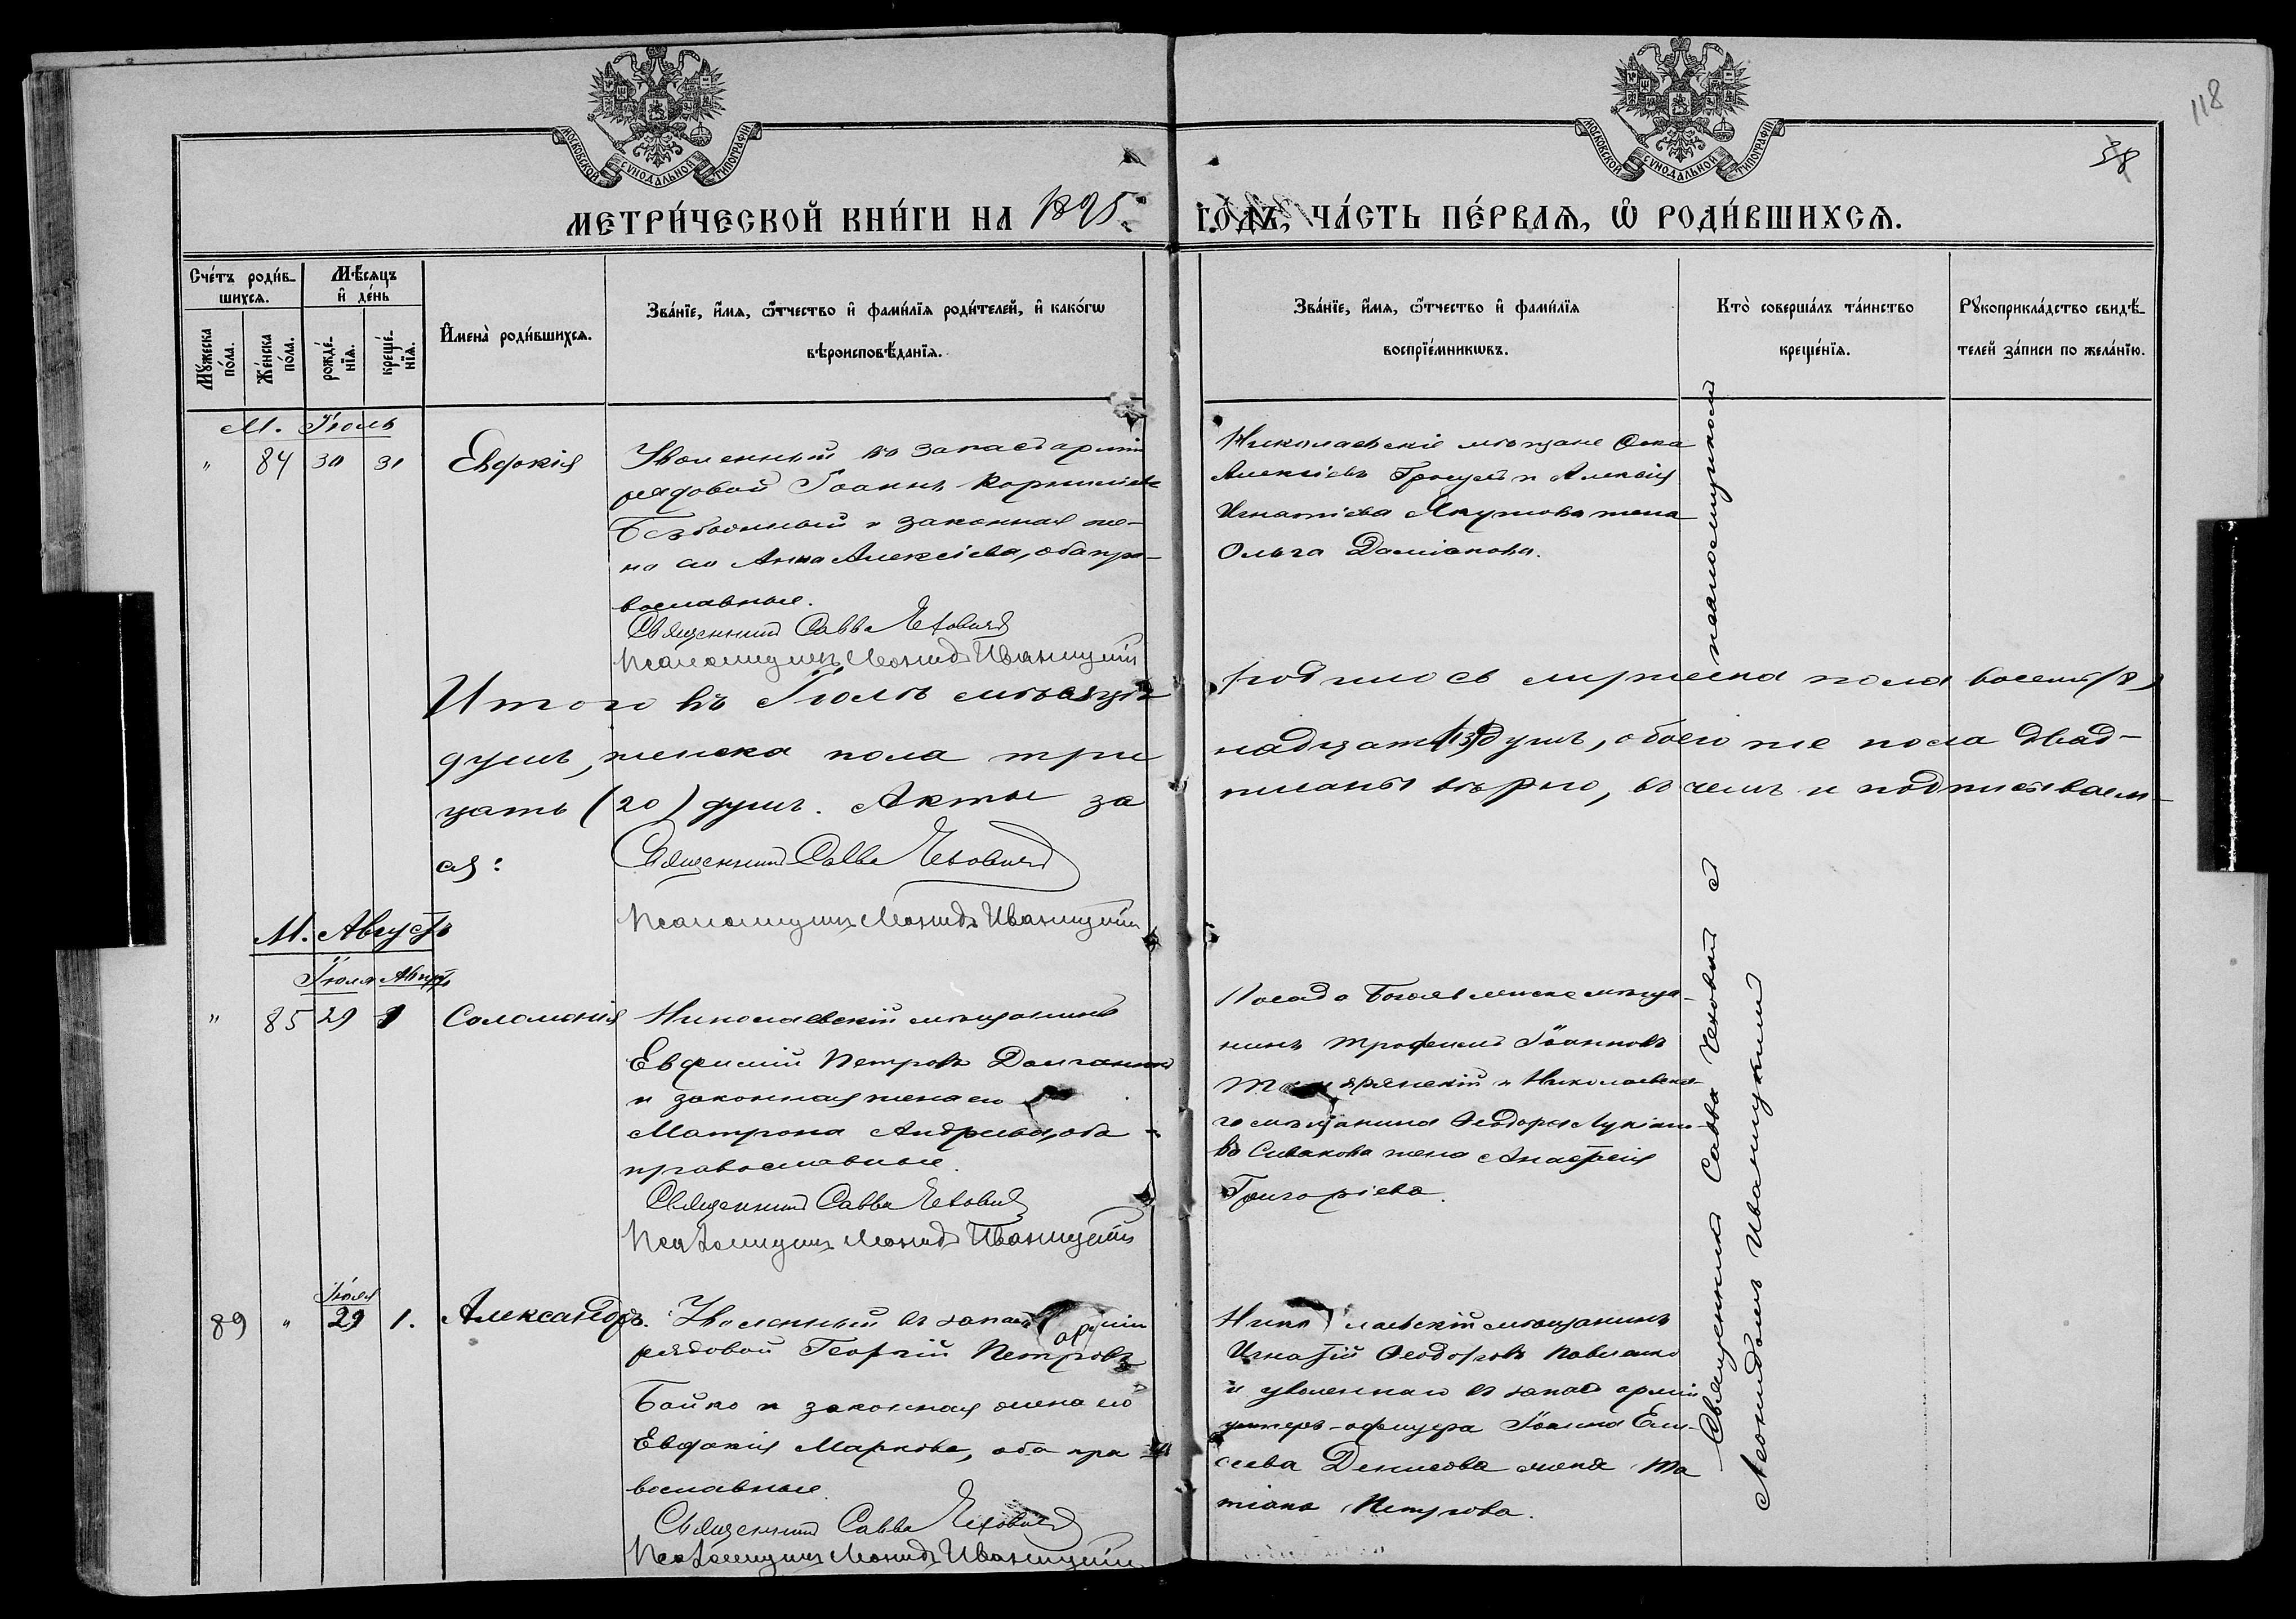 118
38
МОСКОВСКОЙ СѴНОДАЛЬНОЙ ТИПОГРАФІИ
МОСКОВСКОЙ СѴНОДАЛЬНОЙ ТИПОГРАФІИ
МЕТРИ́ЧЕСКОЙ КНИ́ГИ НА 1895 ГО́ДЪ, ЧА́СТЬ ПЕ́РВАЯ, Ѡ РОДИ́ВШИХСЯ.
Сче́тъ роди́в-
шихся.
Мꙋ́жеска по́ла.
Же́нска по́ла.
Мѣ́сяцъ
и҆ де́нь
рожде́-
нїя.
креще́-
нїя.
И҆мена̀ роди́вшихся.
Зва́нїе, и҆́мя, ѻ҆́тчество и҆ фами́лїя роди́телей, и҆ како́гѡ
вѣроисповѣ́данїя.
Зва́нїе, и҆́мя, ѻ҆́тчество и҆ фами́лїя
воспрїе́мникѡвъ.
Кто̀ соверша́лъ та́инство
креще́нїя.
Рꙋкоприкла́дство свидѣ́-
телей за́писи по жела́нїю.
М. Іюль
" 84 30 31 Евдокія
Уволенный въ запасъ арміи
рядовой Іоаннъ Корниліевъ
и законная же-
на его Анна Алексіева, оба пра-
вославные.
Священникъ Савва Яновичъ
Псаломщикъ Леонидъ Иваницкій
Николаевскіе мѣщане Ѳома
Алексіевъ и Алексія
Игнатіева жена
Ольга Даміанова.
Итого въ Іюлѣ мѣсяцѣ родилось мужеска пола восемь (8)
душъ, женска пола три надцать (13) душъ, обоего же пола двад-
цать (20) душъ. Акты за писаны вѣрно, въ чемъ и подписываем-
ся:
Священникъ Савва Яновичъ
Псаломщикъ Леонидъ Иваницкій
М. Августъ
Іюля Август
" 85 29 1 Соломонія
Николаевскій мѣщанинъ
Евфимій Петровъ
и законная жена его
Матрона Андреева, оба
православные.
Священникъ Савва Яновичъ
Псаломщикъ Леонидъ Иваницкій
Посада мѣща-
нинъ Трофимъ Іоанновъ
и Николаевска-
го мѣщанина Ѳеодора Лукіано-
ва Сивакова жена Анастасія
Григоріева.
Іюля
89 " 29 1. Александръ.
Уволенный въ запасъ арміи
рядовой Георгій Петровъ
Бойко и законная жена его
Евдокія Маркова, оба пра
вославные.
Священникъ Савва Яновичъ
Псаломщикъ Леонидъ Иваницкій
Николаевскій мѣщанинъ
Игнатій Ѳеодоровъ Павленко
и уволеннаго въ запасъ арміи
унтеръ-офицера Іоанна Ели-
сеева Денисова жена Та
тіана Петрова.
Священникъ Савва Яновичъ съ псаломщикомъ
Леонидомъ Иваницкимъ